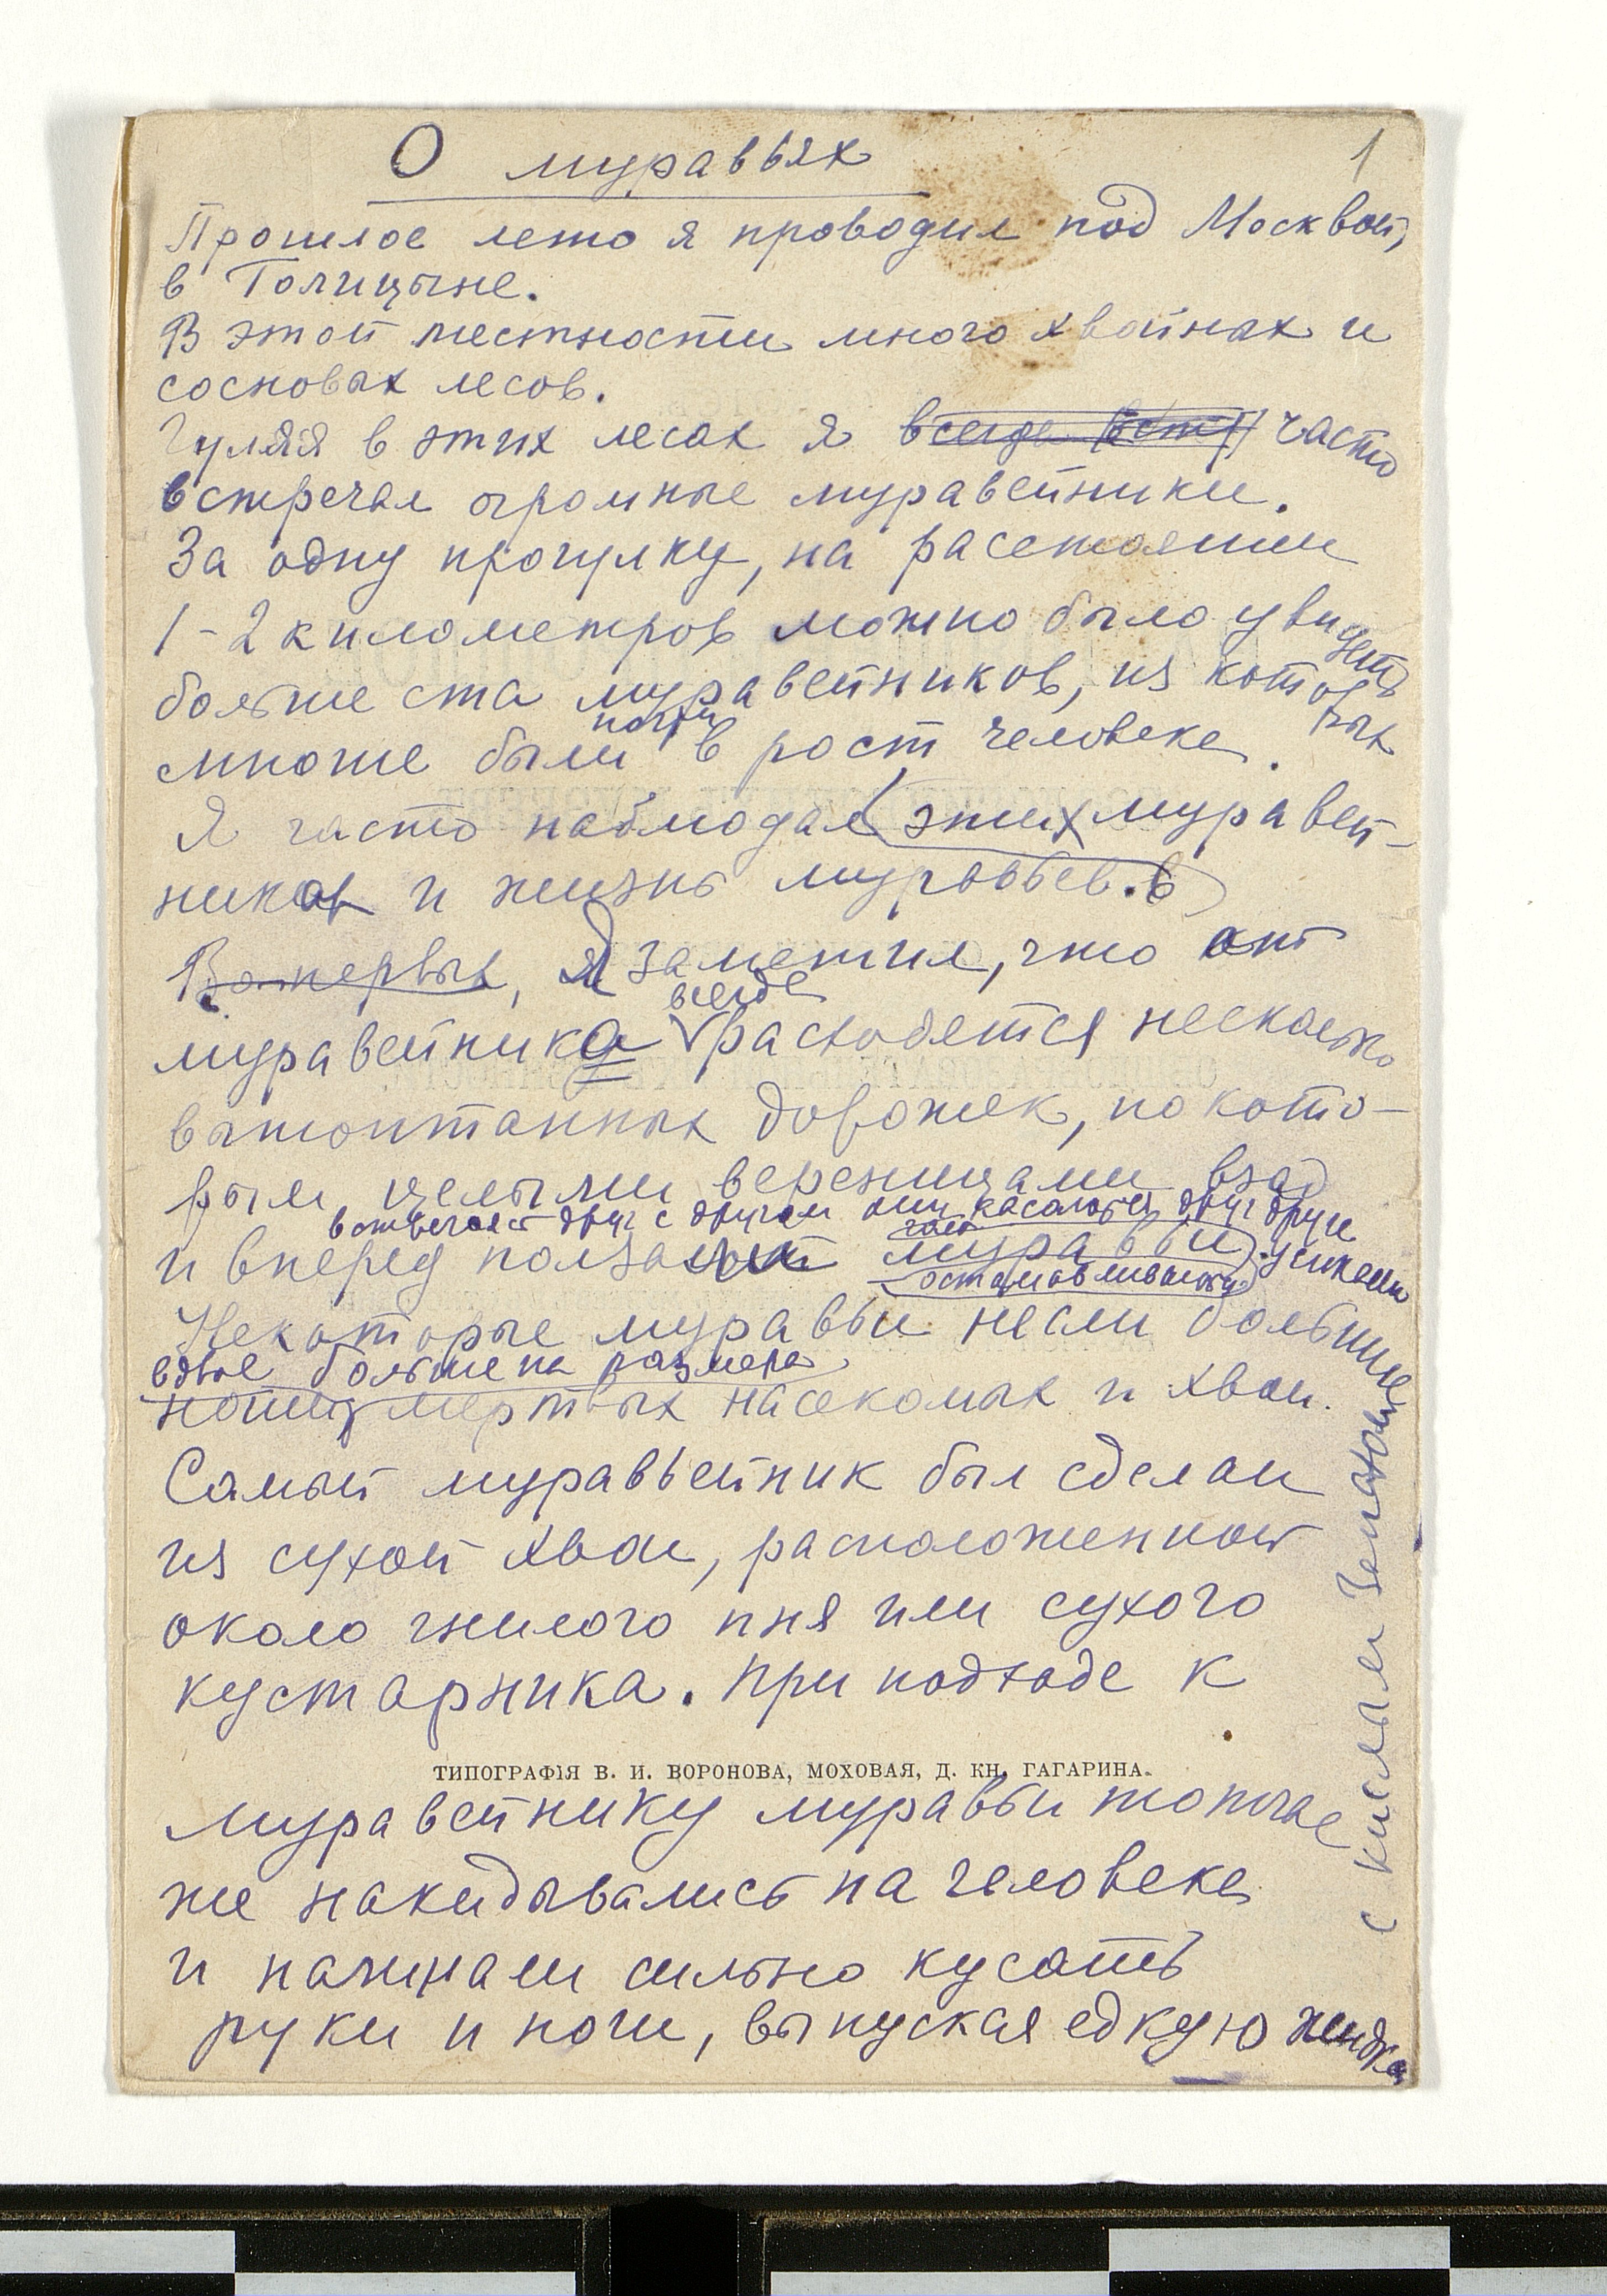 О муравьях
1
Прошлое лето я проводил под Москвой,
в Голицыне.
В этой местности много хвойных и
сосновых лесов.
Гуляя в этих лесах я всегда (вст) часто
встречал огромные муравейники.
За одну прогулку, на расстоянии
1-2 километров можно было увидеть
больше ста муравейников, из которых
почти
многие были в рост человека.
Я часто наблюдал этих муравей-
ников и жизнь муравьев.
Во-первых, Я заметил, что от
всегда
муравейника расходятся несколько
вытоптанных дорожек, по кото-
рым целыми вереницами взад
встречаясь друг с другом они касаются друг друга
и вперед ползают муравьи. усиками
останавливаясь
Некоторые муравьи несли большие
вдвое больше их размера
ноши мертвых насекомых и хвои.
Самый муравьейник был сделан
из сухой хвои, расположенной
около гнилого пня или сухого
кустарника. При подходе к
ТИПОГРАФІЯ В. И. ВОРОНОВА, МОХОВАЯ, Д. КН. ГАГАРИНА.
муравейнику муравьи тотчас
же накидывались на человека
и начинали сильно кусать
руки и ноги, выпуская едкую жидк
с кислым запахом